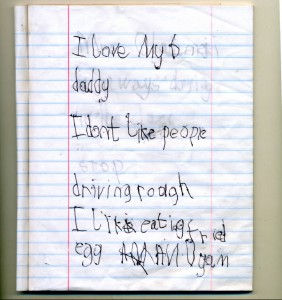 I love My
daddy
I dont like people
driving rough
I like eating fried
egg AND yam